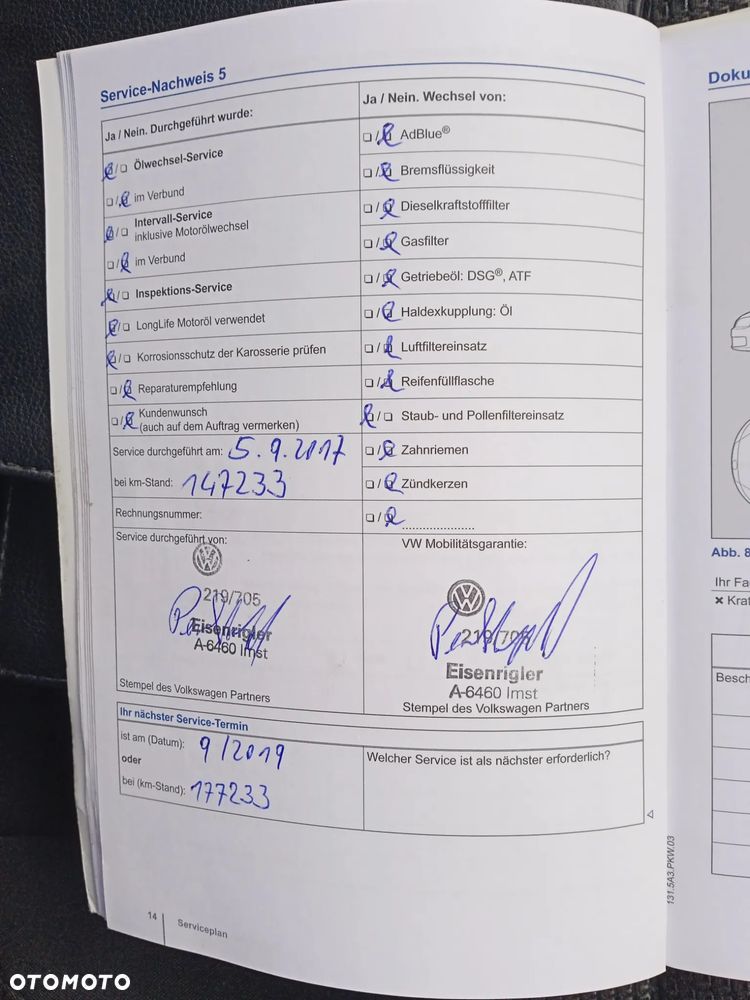 Service-Nachweis 5
Ja / Nein. Durchgeführt wurde:
Ölwechsel-Service
im Verbund
Intervall-Service
inklusive Motorölwechsel
im Verbund
Inspektions-Service
LongLife Motoröl verwendet
Korrosionsschutz der Karosserie prüfen
Reparaturempfehlung
Kundenwunsch
(auch auf dem Auftrag vermerken)
Service durchgeführt am: 5.9.2017
bei km-Stand: 147233
Rechnungsnummer:
Service durchgeführt von:
219/705
Eisenrigler
A-6460 Imst
Stempel des Volkswagen Partners
Ja / Nein. Wechsel von:
AdBlue®
Bremsflüssigkeit
Dieselkraftstofffilter
Gasfilter
Getriebeöl: DSG®, ATF
Haldexkupplung: Öl
Luftfiltereinsatz
Reifenfüllflasche
Staub- und Pollenfiltereinsatz
Zahnriemen
Zündkerzen
VW Mobilitätsgarantie:
219/705
Eisenrigler
A-6460 Imst
Stempel des Volkswagen Partners
Ihr nächster Service-Termin
ist am (Datum): 9/2019
oder
bei (km-Stand): 177233
Welcher Service ist als nächster erforderlich?
14
Serviceplan
131.5A3.PKW.03
Doku
Abb. 8
Ihr Fa
× Kraf
Besch
OTOMOTO